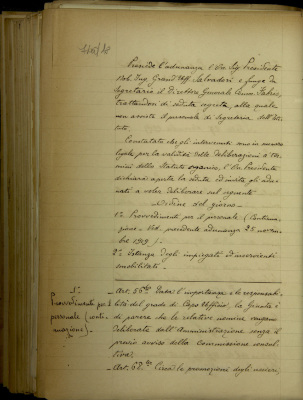 Presiede l'adunanza l'On. Sig. Presidente
Nob. Ing. Grand'Uff. Salvadori e funge da
Segretario il Direttore Generale
trattandosi di seduta segreta, alla quale
non assiste il personale di Segreteria dell'Isti-
tuto.
Constatato che gli intervenuti sono in numero
legale per la validità delle deliberazioni a ter-
mini dello Statuto organico, l'On. Presidente
dichiara aperta la seduta ed invita gli adu-
nati a voler deliberare sul seguente
Ordine del giorno
1° Provvedimenti per il personale (Continua-
zione - Ved. precedente adunanza 25 novem-
bre 1919).
2° Istanza degli impiegati ed inservienti
smobilitati.
1°
Provvedimenti per il
personale (conti-
nuazione).
Art. 56° Data l'importanza e le responsabi-
lità del grado di Capo Ufficio, la Giunta è
di parere che le relative nomine vengano
deliberate dall'Amministrazione senza il
previo avviso della Commissione consul-
tiva.
Art. 62° Circa le promozioni degli uscieri,